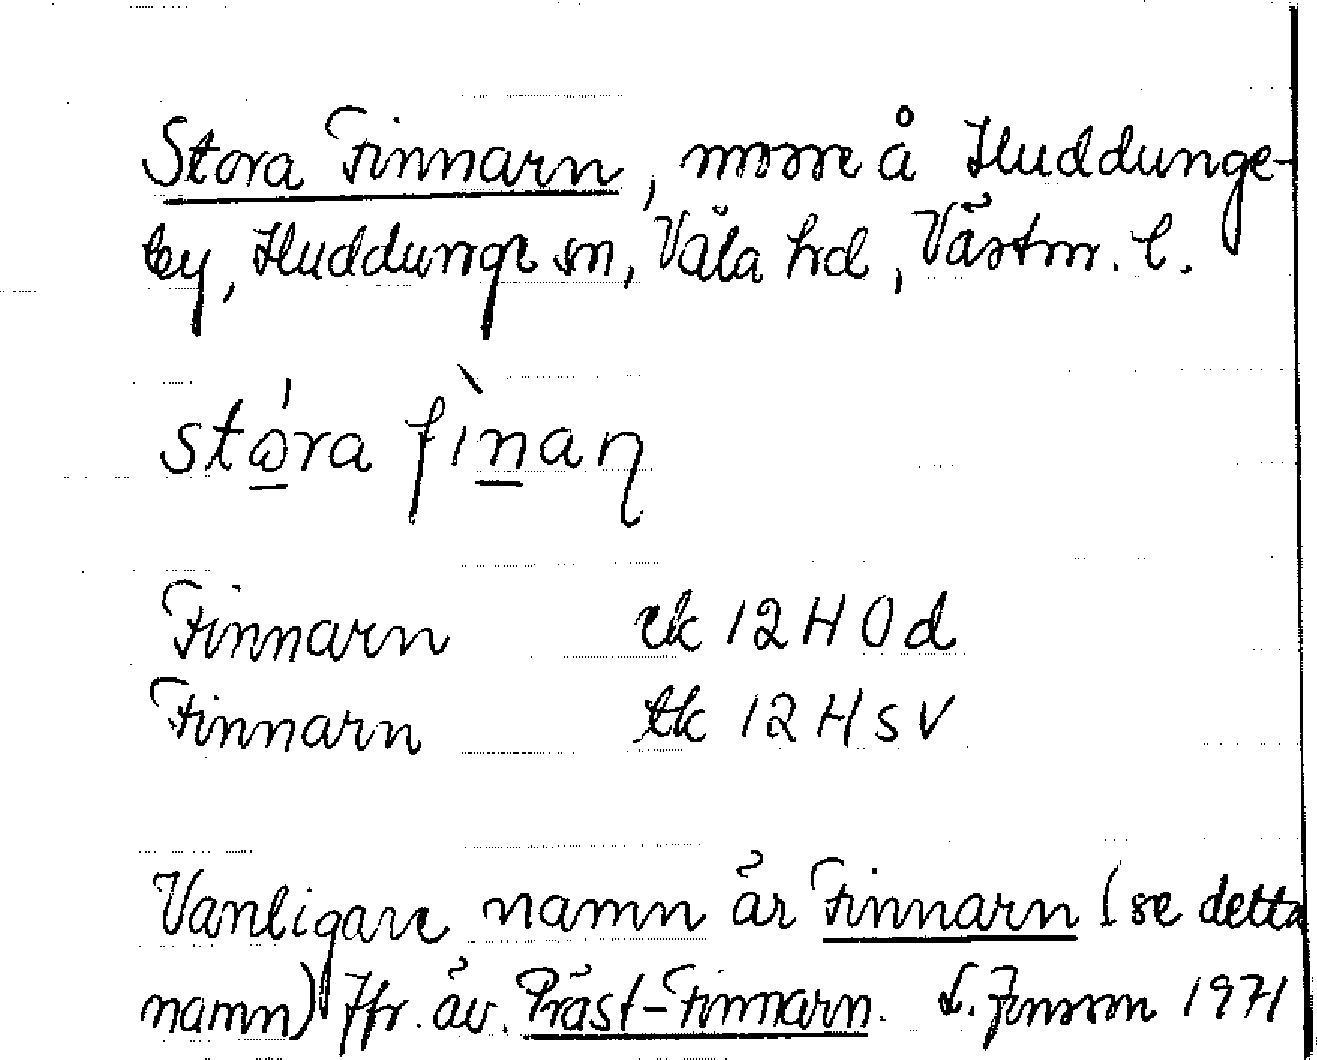 Stora Finnarn, mosse å Huddunge-
by, Huddunge sn, Våla hd, Västm. l.
stóra fìnaɳ
Finnarn ek 12H0d
Finnarn tk 12HSV
Vanligare namn är Finnarn (se detta
namn) Jfr. äv. Präst-Finnarn. Jonsson 1971